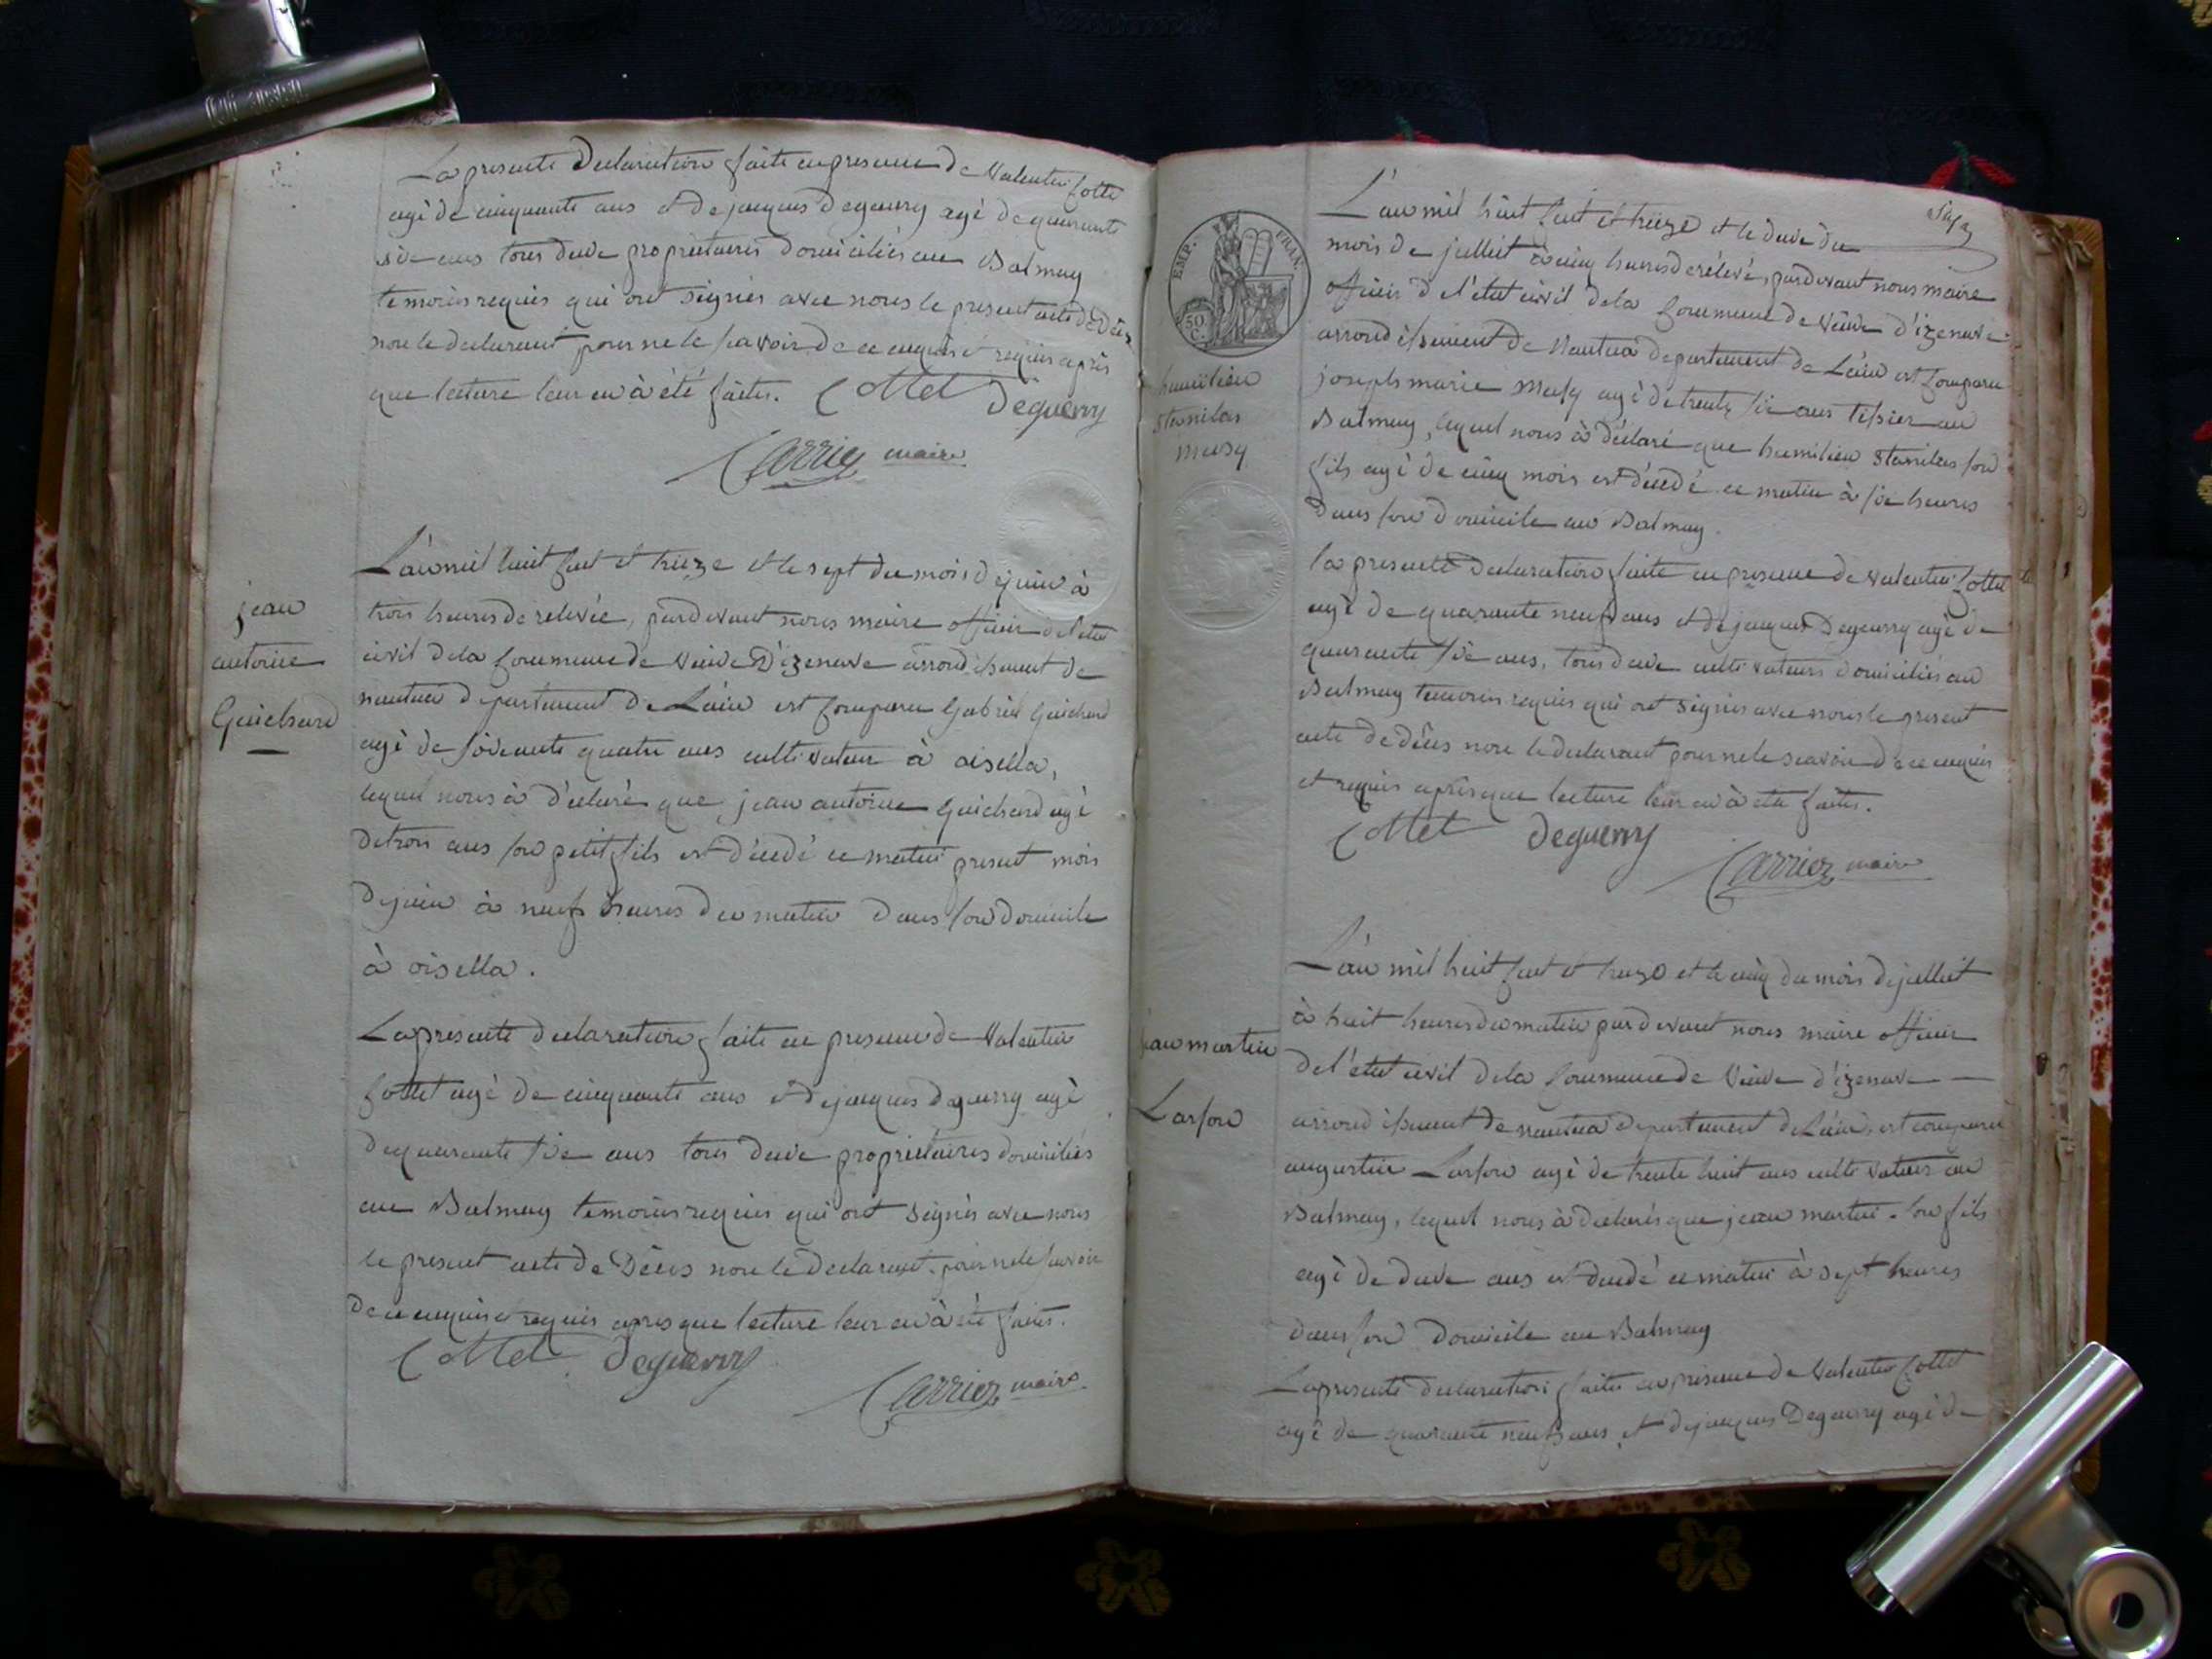 La presente declaration faite en presence de Valentin Cottet
agé de cinquante ans et de jacques Deguerry agé de quarante
six ans tous deux proprietaires domiciliés au Balmay
temoins requis qui ont signés avec nous le present acte de décès
non le declarant pour ne le savoir de ce enquis et requis après
que lecture leur en à été faite. Cottet Deguerry
Carrier maire
jean
antoine
Guichard
L'an mil huit cent et treize et le sept du mois de juin à
trois heures de relevée, pardevant nous maire officier de l'etat
civil de la Commune de Vieux D'izenave arrondissement de
nantua departement de L'ain est comparu Gabriel Guichard
agé de soixante quatre ans cultivateur à oisella,
lequel nous à déclaré que jean antoine Guichard agé
de trois ans son petit fils est décédé ce matin present mois
de juin à neuf heures du matin dans son domicile
à oisella.
La presente declaration faite en presence de Valentin
Cottet agé de cinquante ans et de jacques deguerry agé
de quarante six ans tous deux proprietaires domiciliés
au Balmay temoins requis qui ont signés avec nous
le present acte de Décès non le declarant pour ne le savoir
de ce enquis et requis après que lecture leur en à été faite.
Cottet Deguerry
Carrier maire
EMP. FRAN.
50 C.
humilien
stanilas
musy
L'an mil huit cent et treize et le deux du
mois de juillet à cinq heures de relevé, pardevant nous maire
officier de l'etat civil de la Commune de Vieux d'izenave
arrondissement de Nantua departement de L'ain est comparu
joseph marie Musy agé de trente six ans tissier au
Balmay, lequel nous à déclaré que humilien stanilas son
fils agé de cinq mois est décédé ce matin à six heures
dans son domicile au Balmay.
la presente declaration faite en presence de valentin Cottet
agé de quarante neuf ans et de jacques Deguerry agé de
quarante six ans, tous deux cultivateurs domiciliés au
Balmay temoins requis qui ont signés avec nous le present
acte de décès non le declarant pour ne le scavoir de ce enquis
et requis après que lecture leur en à été faite.
Cottet deguerry
Carrier maire
jean martin
Larson
L'an mil huit cent et treize et le cinq du mois de juillet
à huit heures du matin pardevant nous maire officier
de l'état civil de la Commune de Vieux d'izenave
arrondissement de nantua departement de L'ain, est comparu
augustin Larson agé de trente huit ans cultivateur au
Balmay, lequel nous à declarés que jean martin son fils
agé de deux ans est décédé ce matin à sept heures
dans son domicile au Balmay
La presente declaration faite en presence de Valentin Cottet
agé de quarante neuf ans, et de jacques Deguerry agé de